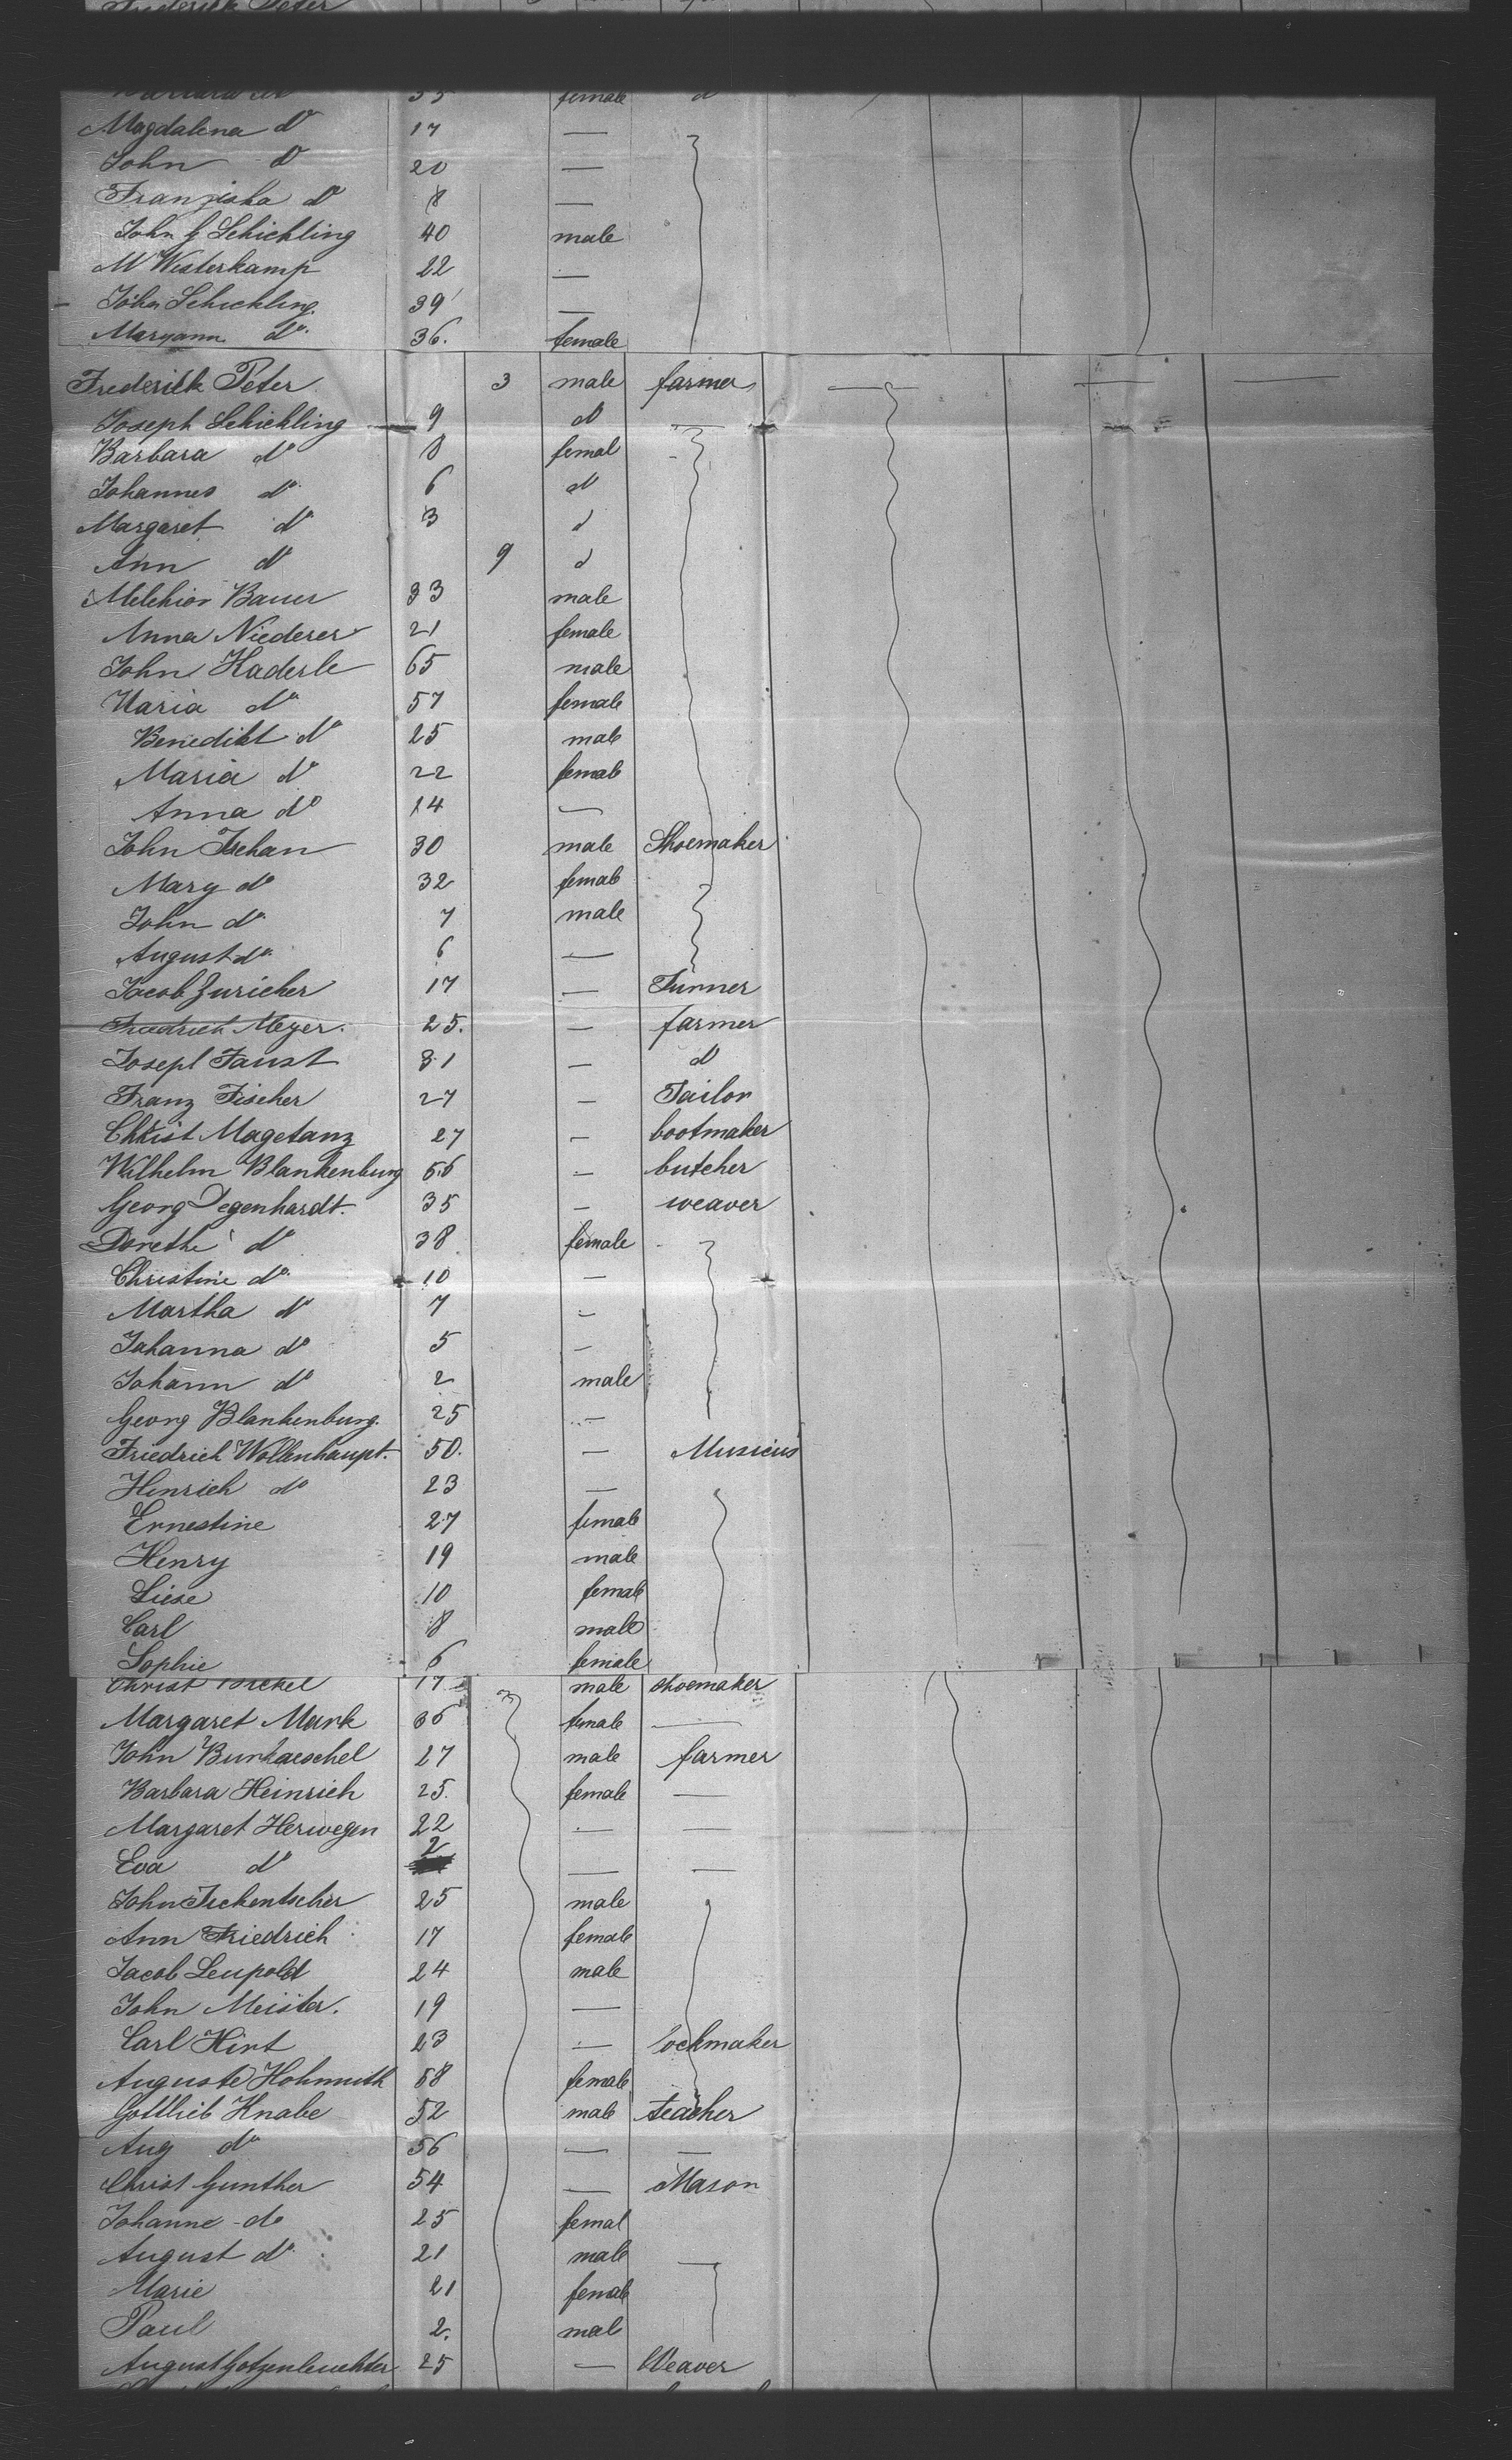 Frederick Peter
35 female d
Magdalena do 17 —
John do 20 —
Franziska do 8 —
John G Schickling 40 male
M Westerkamp 22 —
John Schickling 39 —
Maryann do 36. female
Frederick Peter 3 male farmer — — —
Joseph Schickling 9 do —
Barbara do 8 femal -
Johannes do 6 do
Margaret do 3 d
Ann do 9 d
Melchior Bauer 33 male
Anna Niederer 21 female
John Haderle 65 male
Maria do 57 female
Benedikt do 25 male
Maria do 22 female
Anna do 14 —
John Tschan 30 male Shoemaker
Mary do 32 female
John do 7 male
August do 6 —
Jacob Zuricher 17 — Turner
Friedrich Meyer. 25. — farmer
Joseph Faust 31 — do
Franz Fischer 27 — Tailor
Christ Magetanz 27 — bootmaker
Wilhelm Blankenburg 56 — butcher
Georg Degenhardt. 35 — weaver
Dorethe do 38 female -
Christine do 10 —
Martha do 7 —
Johanna do 5 —
Johann do 2 male
Georg Blankenburg. 25 —
Friedrich Wollenhaupt. 50. — Musicus
Henrich do 23 —
Ernestine 27 female
Henry 19 male
Liese 10 female
Carl 8 male
Sophie 6 female
Christ 17 male shoemaker
Margaret Munk 36 female —
John Burkaeschel 27 male farmer
Barbara Heinrich 25. female —
Margaret Herwegen 22 — —
Eva do 2 — —
John Tschentscher 25 male
Ann Friedrich 17 female
Jacob Leupold 24 male
John Meister. 19 —
Carl Hirt 23 — lockmaker
Auguste Hohmuth 58 female
Gottlieb Knabe 52 male teacher
Aug do 56 — —
Christ Gunther 54 — Mason
Johanne do 25 femal
August do 21 male
Marie 21 female
Paul 2. male
August Gotzenleuchter 25 — Weaver